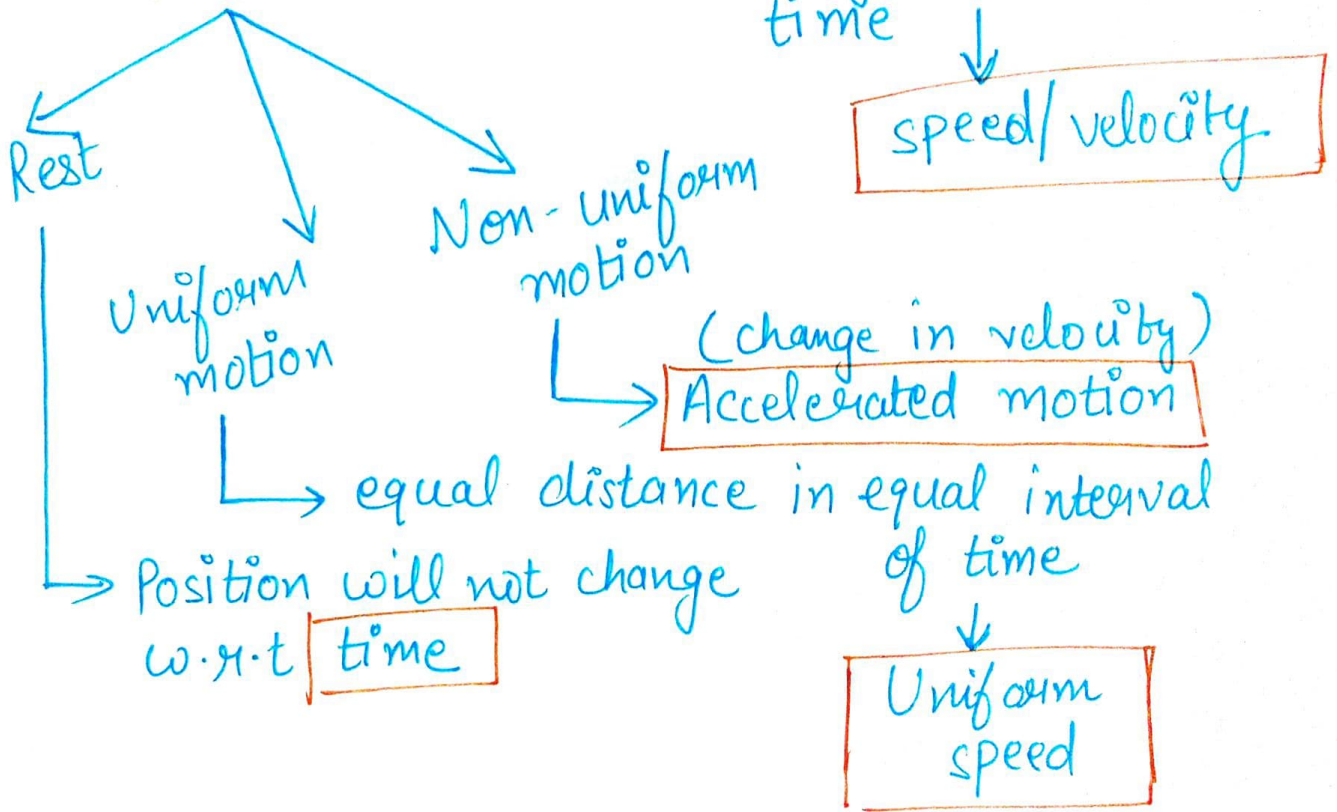 time
speed/velocity
Rest
Non-uniform
motion
Uniform
motion
(change in velocity)
Accelerated motion
equal distance in equal interval
of time
Position will not change
w.r.t time
Uniform
speed